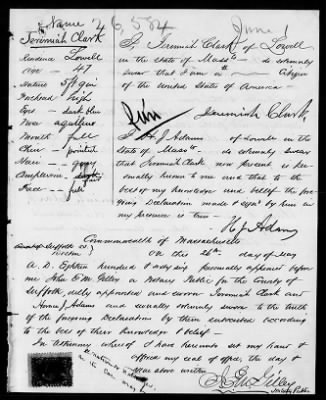 Name 26,584 June
Jeremiah Clark
Residence Lowell
Age - 47
Stature 5 ft 9 in
Forehead high
Eyes dark blue
Nose aquiline
Mouth full
Chin pointed
Hair gray
Complexion
Face full
I, Jeremiah Clark of Lowell
in the State of Mass do solemnly
swear that I am a Citizen
of the United States of America
Jeremiah Clark,
I, H. J. Adams of Lowell in the
State of Mass do solemnly swear
that Jeremiah Clark now present is per-
sonally known to me and that to the
best of my knowledge and belief the fore-
going Declaration made & signed by him in
my presence is true
H J Adams
Commonwealth of Massachusetts
County of Suffolk ss
Boston
On this 26th day of May
A. D. Eighteen hundred & sixty six personally appeared before
me John E M Gilley a Notary Public for the County of
Suffolk, duly appointed and sworn Jeremiah Clark and
J Adams and severally solemnly swore to the truth
of the foregoing Declaration by them subscribed according
to the best of their knowledge & belief -
In testimony whereof I have hereunto set my hand &
affixed my seal of office, the day &
year above written
J E M Gilley
Notary Public